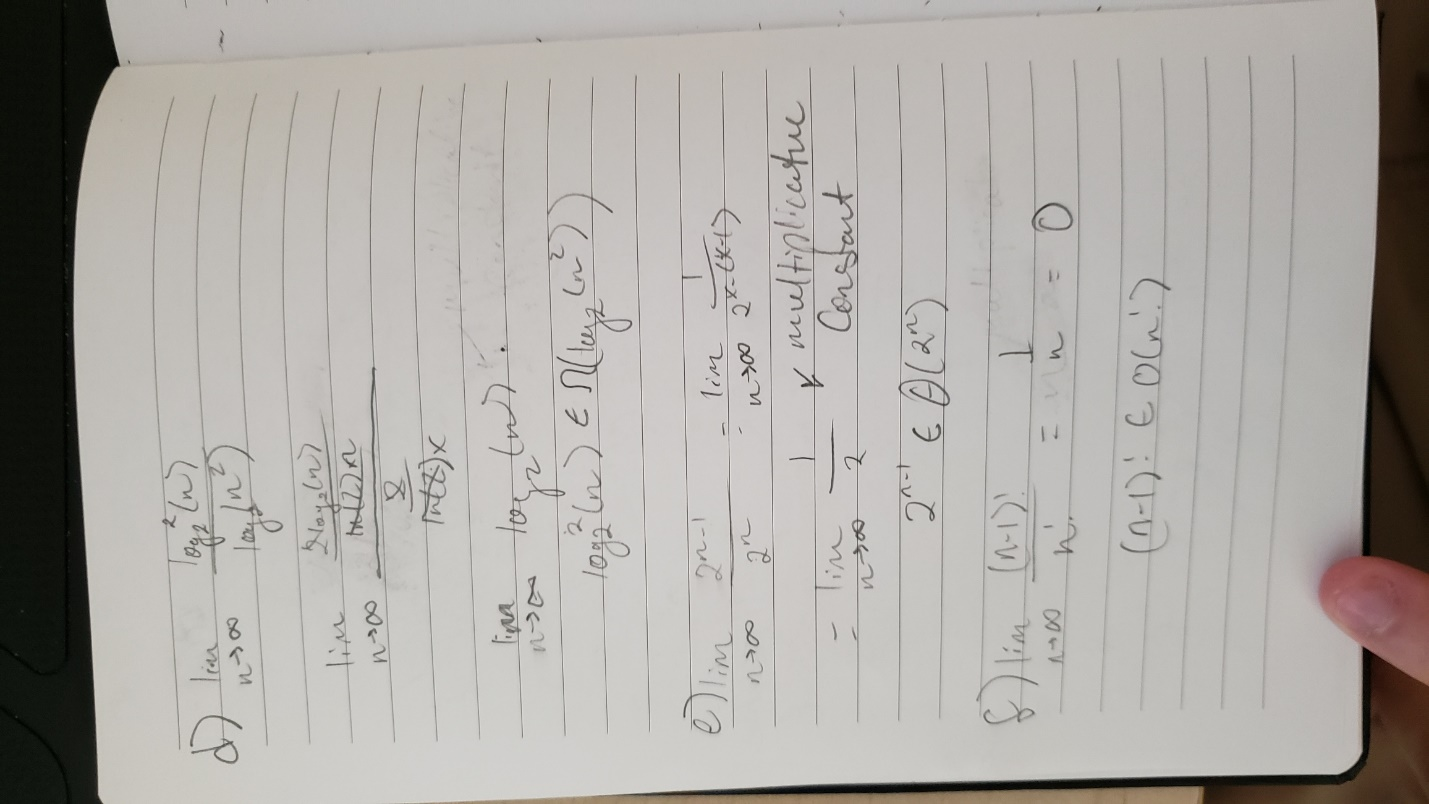 d) lim n→∞ log₂²(n) / log₂(n²)
lim n→∞ (2log₂(n) / ln(2)n) / (2 / ln(2)x)
lim n→∞ log₂(n).
log₂²(n) ∈ Ω(log₂(n²))
e) lim n→∞ 2ⁿ⁻¹ / 2ⁿ = lim n→∞ 1 / 2^(x-(x-1))
= lim n→∞ 1/2 multiplicative
constant
2ⁿ⁻¹ ∈ Θ(2ⁿ)
f) lim n→∞ (n-1)! / n! = 1/n = 0
(n-1)! ∈ O(n!)